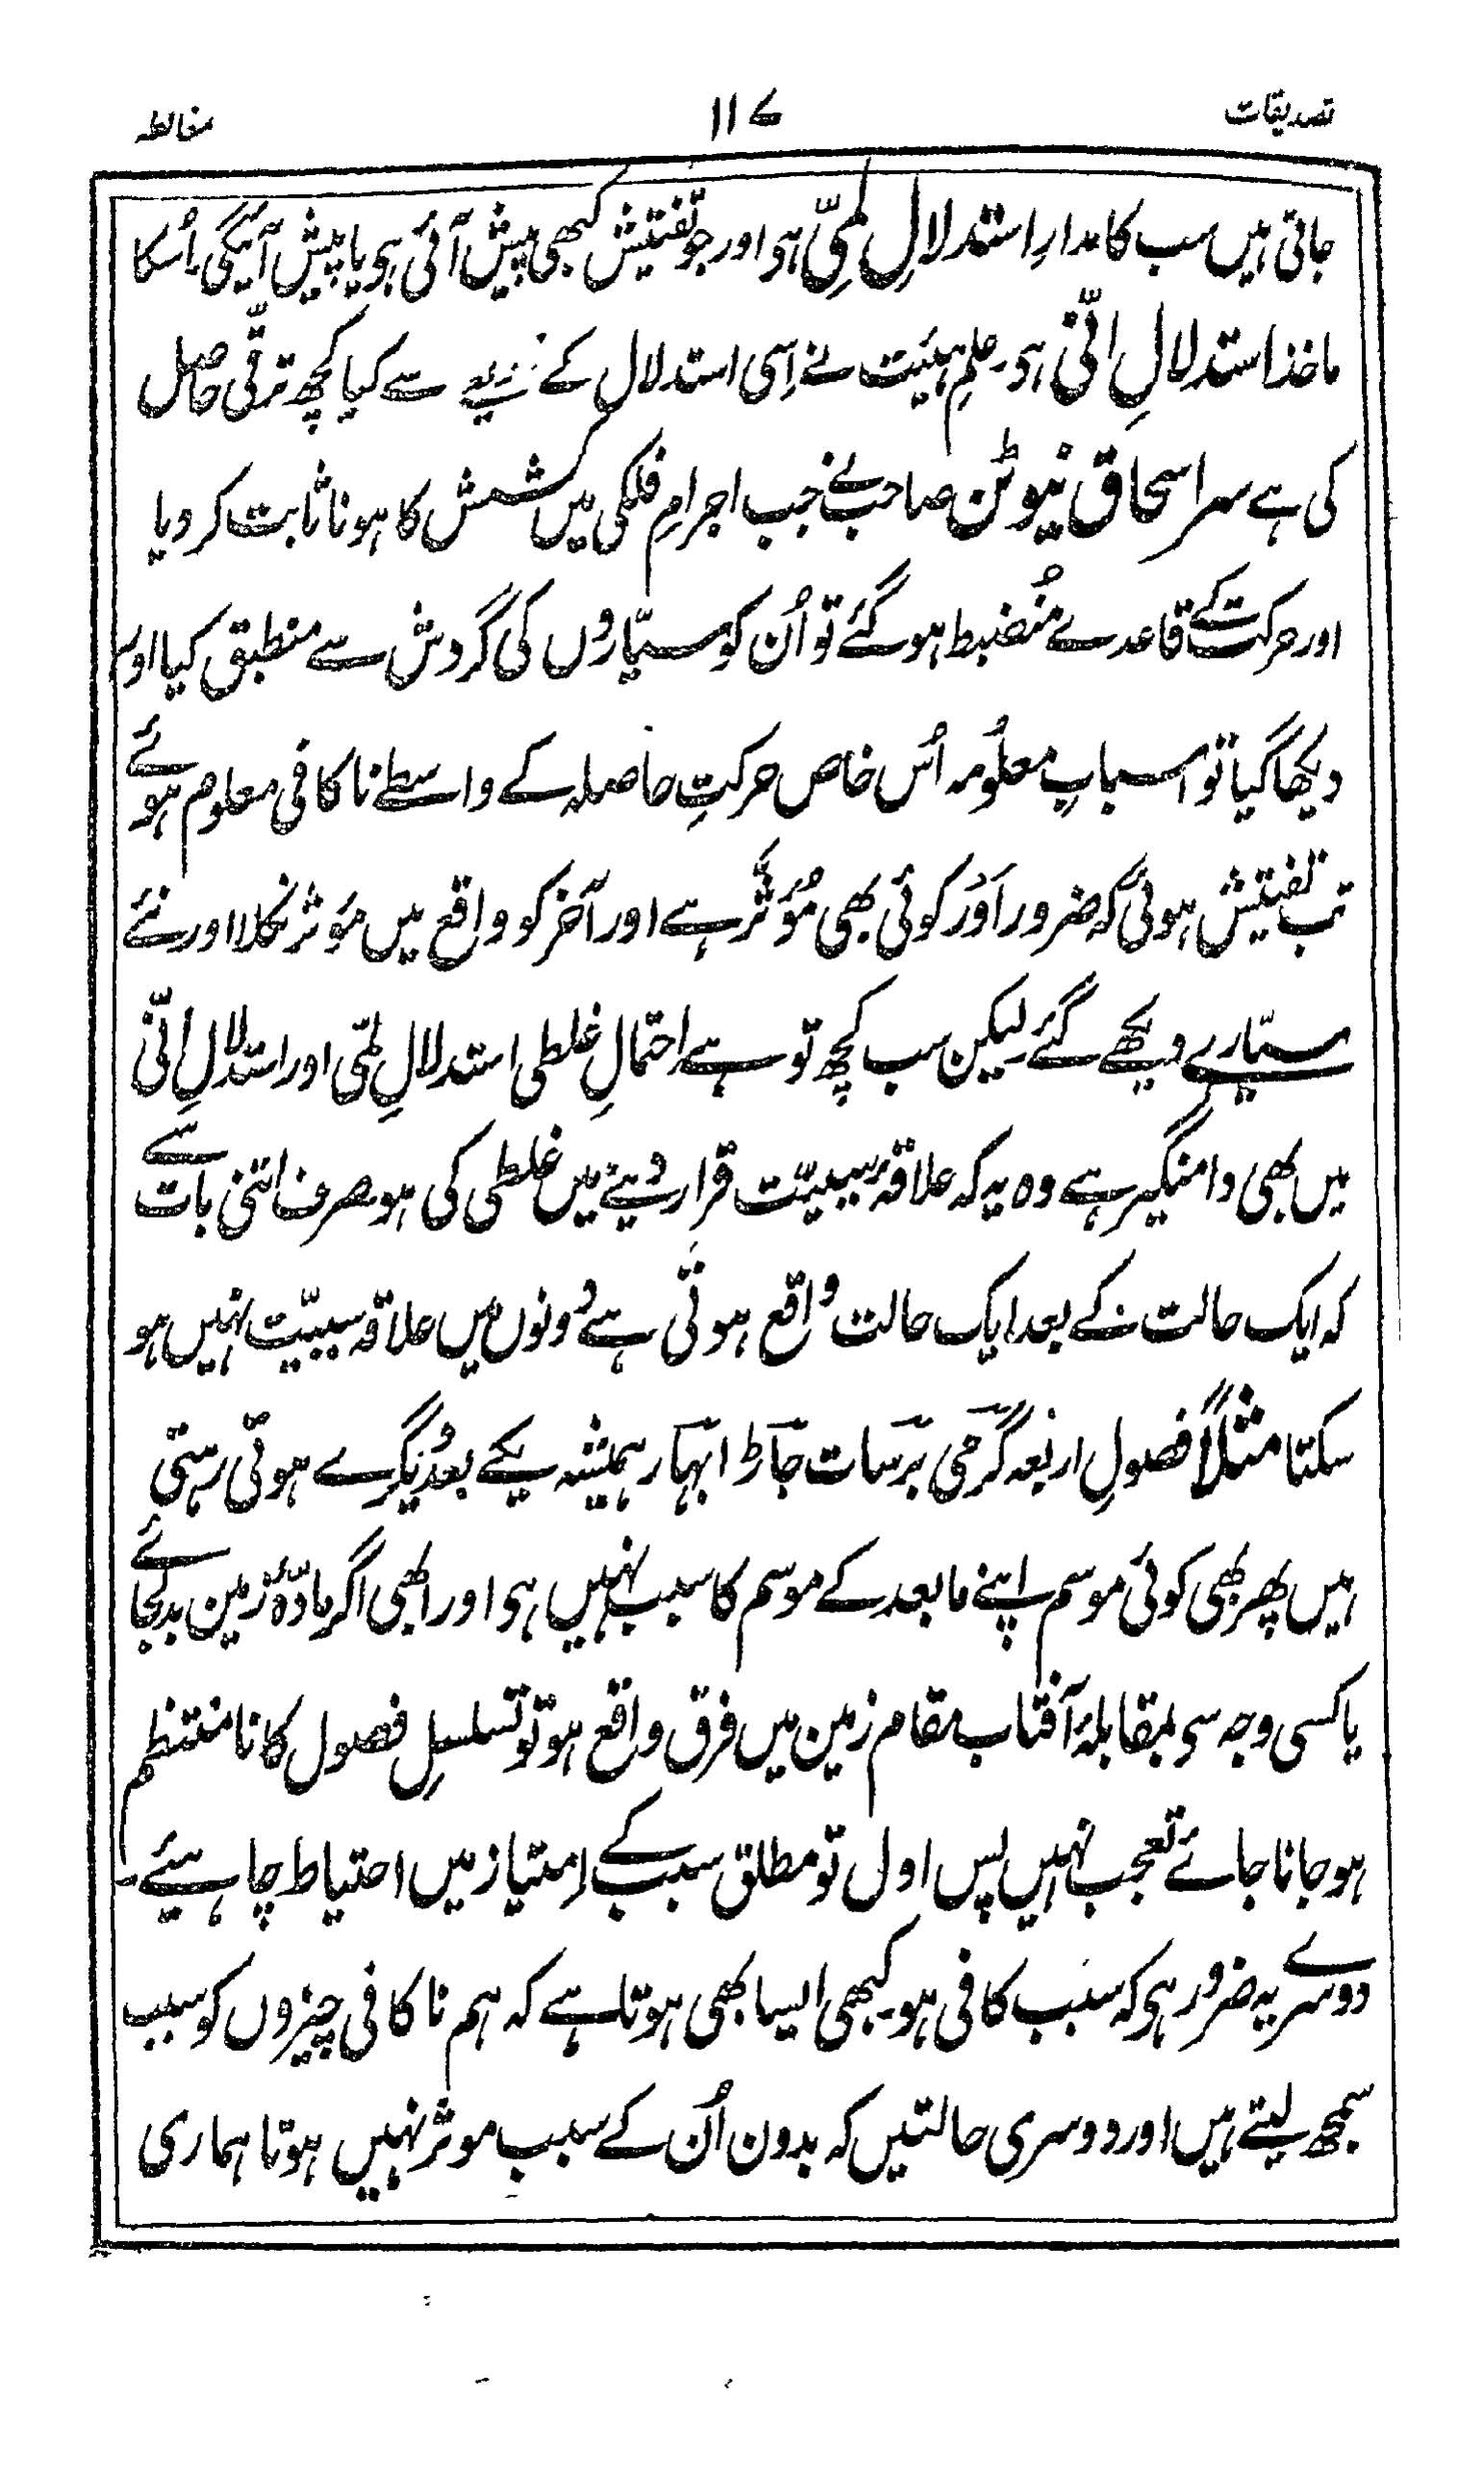 تصدیقات ۱۱۷ مغالطہ
جاتی ہیں سب کا مدارِ استدلالِ لِمّی ہو اور جو تفتیش کبھی پیش آئی ہو یا پیش آئیگی اُسکا
ماخذ استدلالِ انّی ہو۔ علمِ ہیئت نے اِسی استدلال کے ذریعے سے کیا کچھ ترقّی حاصل
کی ہے سر اسحاق نیوٹن صاحب نے جب اجرامِ فلکی میں کشش کا ہونا ثابت کر دیا
اور حرکت کے قاعدے مُنضبط ہو گئے تو اُن کو سیّاروں کی گردش سے منطبق کیا اور
دیکھا گیا تو اسبابِ معلُومہ اُس خاص حرکتِ حاصلہ کے واسطے ناکافی معلوم ہوئے
تب تفتیش ہوئی کہ ضرور اَوْر کوئی بھی مُؤثّر ہے اور آخر کو واقع میں مؤثر نکلا اور نئے
سیّارے دیکھے گئے لیکن سب کچھ تو ہے احتمالِ غلطی استدلالِ لمّی اور استدلالِ انّی
میں بھی دامنگیر ہے وہ یہ کہ علاقۂ سببیّت قرار دینے میں غلطی کی ہو صرف اتنی بات سے
کہ ایک حالت کے بعد ایک حالت واقع ہوتی ہے دونوں میں علاقہ سببیّت نہیں ہو
سکتا مثلاً فصولِ اربعہ گرمی برسات جاڑا بہار ہمیشہ یکے بعد دیگرے ہوتی رہتی
ہیں پھر بھی کوئی موسم اپنے مابعد کے موسم کا سبب نہیں ہو اور ابھی اگر مادّۂ زمین بدلجائے
یا کسی وجہ سی بمقابلۂ آفتاب مقام زمین میں فرق واقع ہو تو تسلسلِ فصول کا نا منتظم
ہو جانا جائے تعجب نہیں پس اول تو مطلق سبب کے اِمتیاز میں احتیاط چاہیئے۔
دوسرے یہ ضرور ہی کہ سبب کافی ہو۔ کبھی ایسا بھی ہوتا ہے کہ ہم ناکافی چیزوں کو سبب
سمجھ لیتے ہیں اور دوسری حالتیں کہ بدون اُن کے سبب موثر نہیں ہوتا ہماری